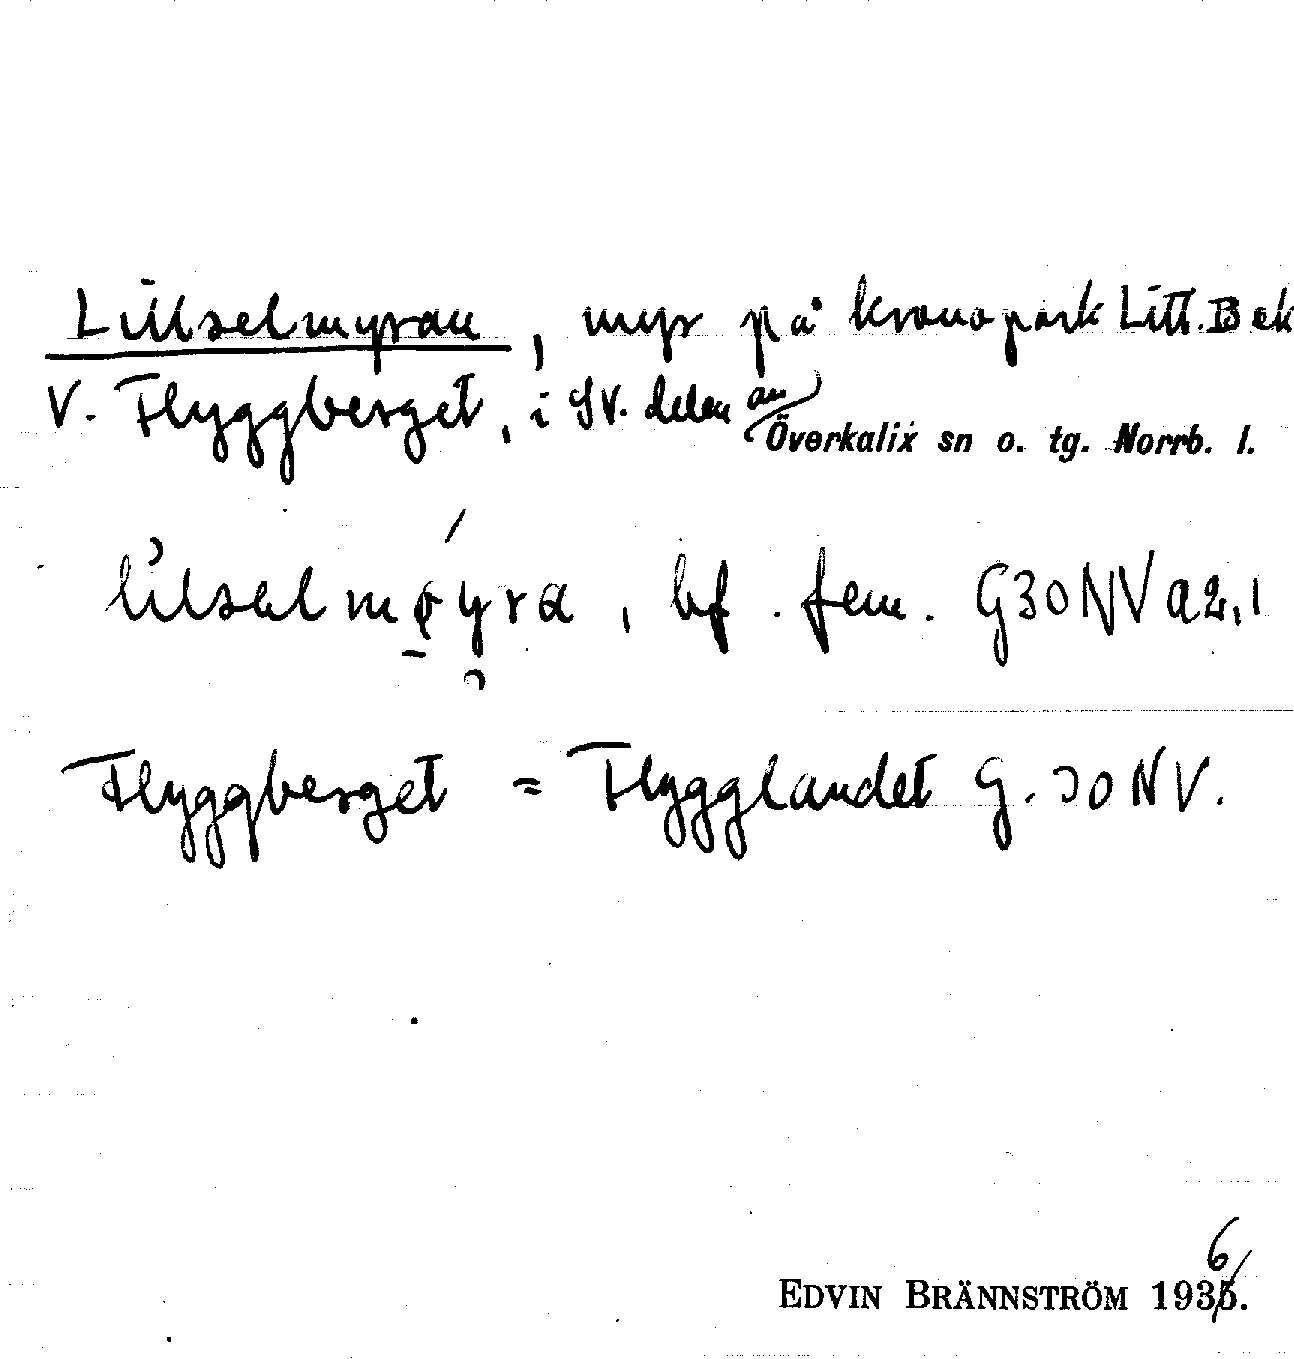 Lillselmyran, myr på kronopark Litt. B ek
V. Flyggberget, i SV. delen av
Överkalix sn o. tg. Norrb. l.
bf. fem. G30NV a2,1
Flyggberget = Flygglandet G. 30 NV.
EDVIN BRÄNNSTRÖM 1936.